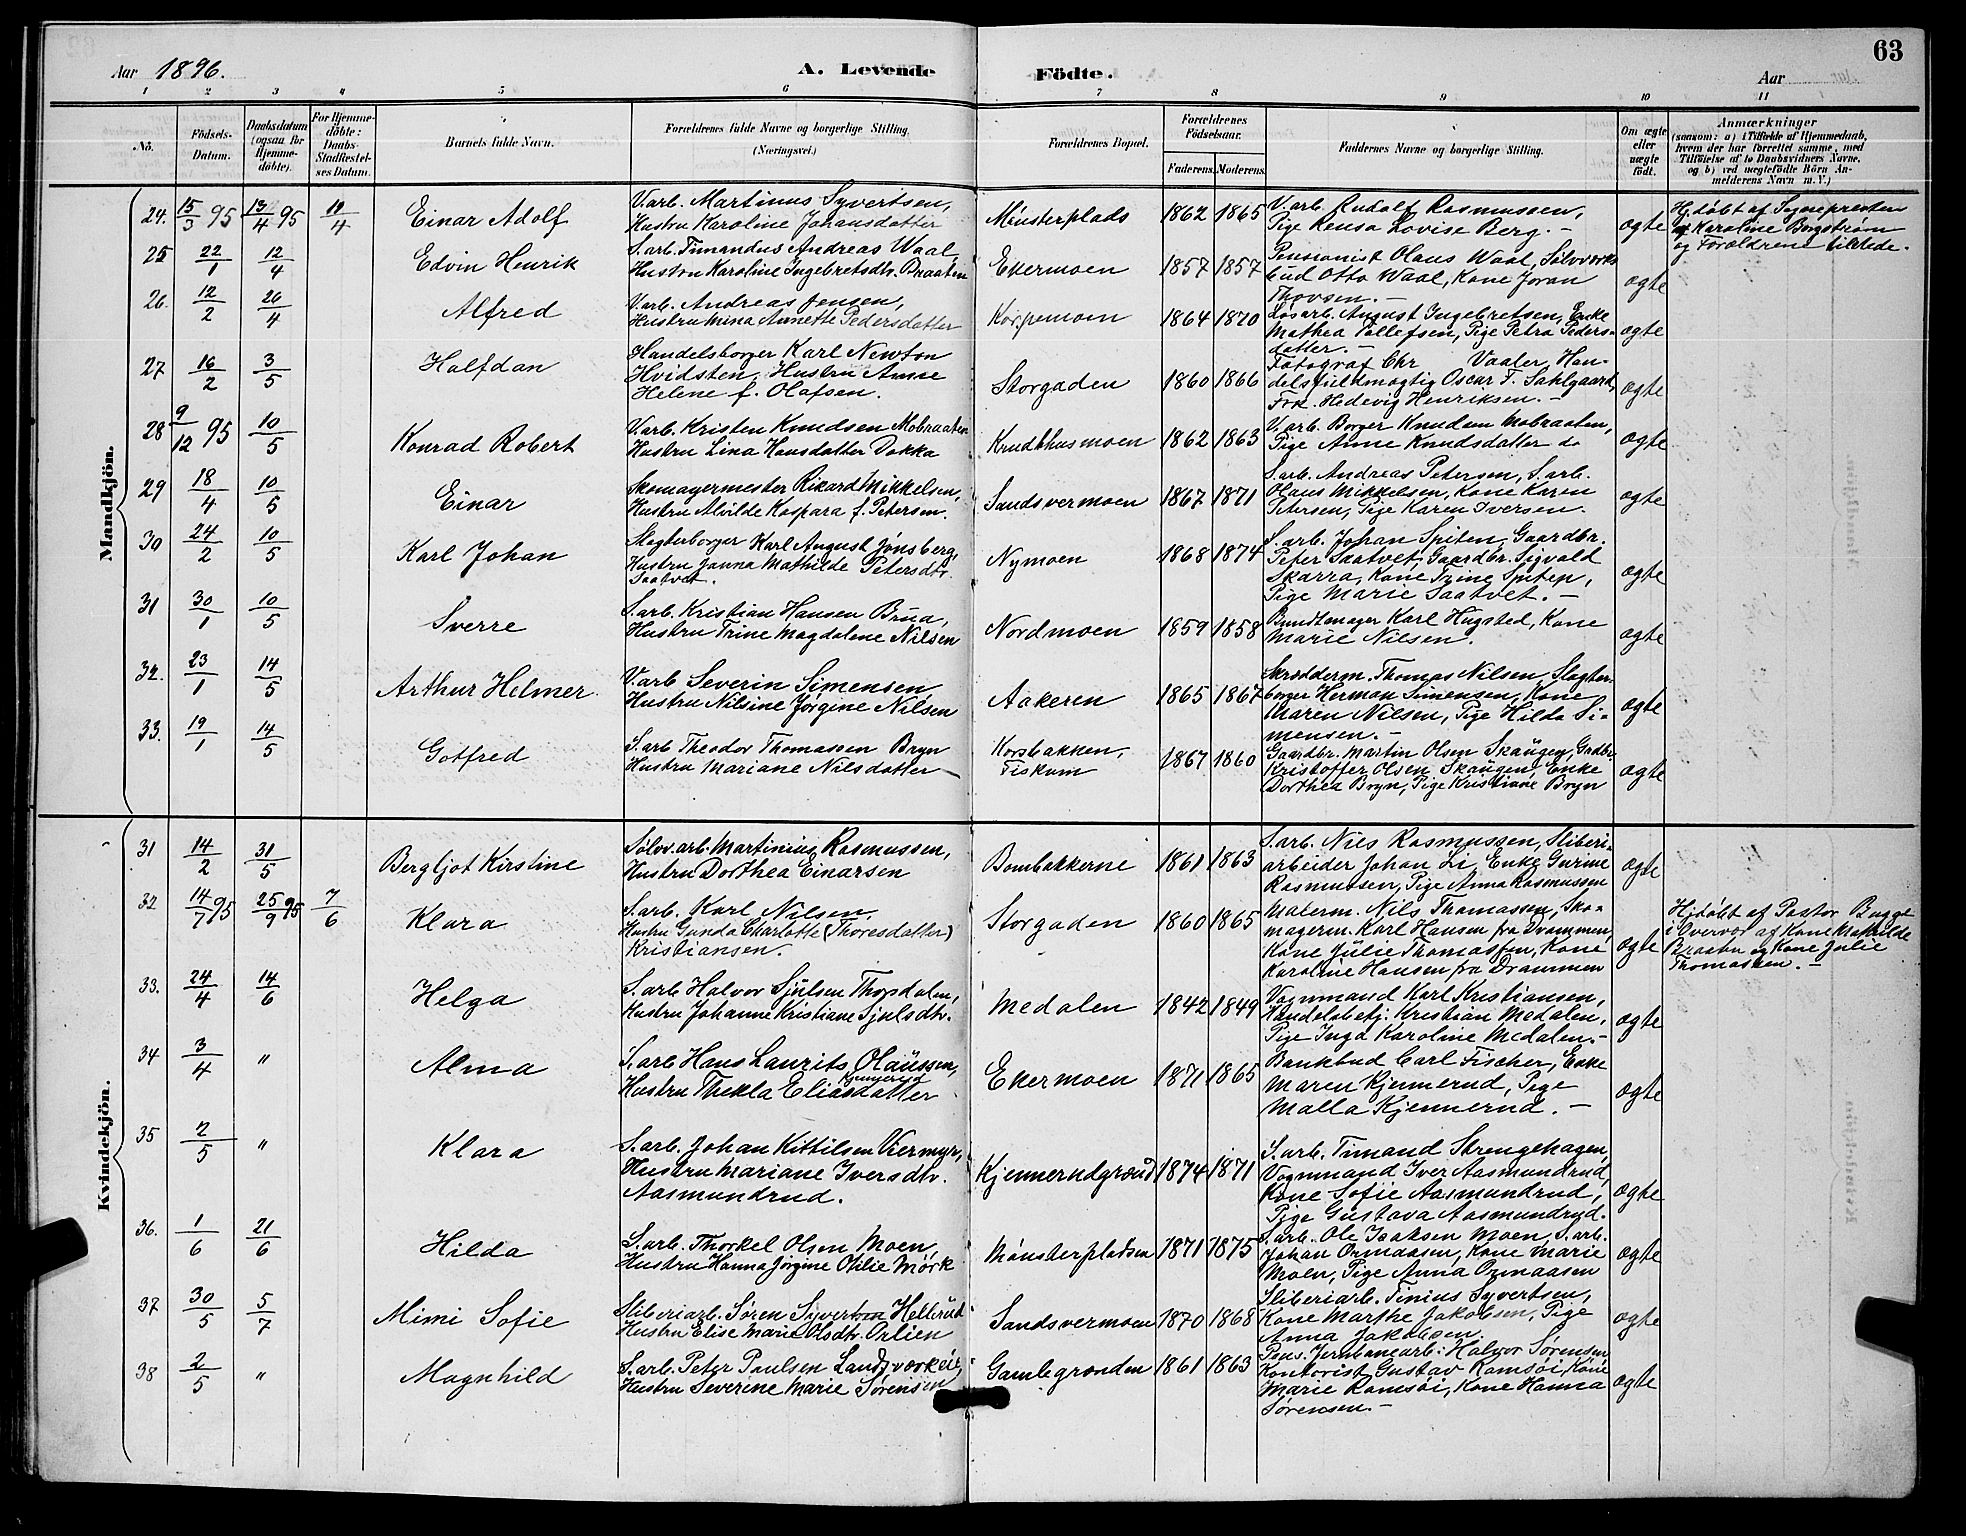 63
Aar 1896.
A. Levende Födte.
Aar
1 2 3 4 5 6 7 8 9 10 11
No.
Födsels-Datum.
Daabsdatum (ogsaa for Hjemmedöbte).
For Hjemmedöbte: Daabs-Stadfestelses Datum.
Barnets fulde Navn.
Forældrenes fulde Navne og borgerlige Stilling. (Næringsvei.)
Forældrenes Bopæl.
Forældrenes Födselsaar.
Faderens. Moderens.
Faddernes Navne og borgerlige Stilling.
Om ægte eller uægte födt.
Anmærkninger
(saasom: a) i Tilfælde af Hjemmedaab, hvem der har forrettet samme, med Tilföielse af to Daabsvidners Navne, og b) ved uægtefödte Börn Anmelderens Navn m. V.)
Mandkjön.
24. 15/3 95 13/4 95 11/4 Einar Adolf
V.arb. Martinus Syvertsen,
Hustru Karoline Johansdatter
Münsterplads 1862 1865
V.arb. Rudolf Rasmussen,
Pige Rensa Lovise Berg. -
ægte
Hj.døbt af Sognepresten
Karoline Borgstrøm
og Forældrene tilstede.
25 22/1 12/4 Edvin Henrik
S.arb. Timandus Andreas Waal,
Hustru Karoline Ingebretsdtr. Braaten
Ekermoen 1857 1857
Pensionist Olaus Waal, Sølvverks
bud Otto Waal, Kone Joran
Thovsen. -
ægte
26. 12/2 26/4 Alfred
V.arb. Andreas Jensen,
Hustru Mina Annette Pedersdatter
Korpemoen 1864 1870
Løsarb. August Ingebretsen, Enke
Mathea Tollefsen, Pige Petra Peders-
datter. -
ægte
27 16/2 3/5 Halfdan
Handelsborger Karl Newton
Hvidsten, Hustru Anne
Helene f. Olafsen.
Storgaden 1860 1866
Fotograf Chr Vaaler, Han-
delsfuldmægtig Oscar F. Sahlgaard,
Frk. Hedevig Henriksen. -
ægte
28 9/12 95 10/5 Konrad Robert
V.arb. Kristen Knudsen Mobraaten
Hustru Lina Hansdatter Dokka
Krudthusmoen 1862 1863
V.arb. Borger Knudsen Mobraaten,
Pige Anne Knudsdatter do
ægte
29 18/4 10/5 Einar
Skomagermester Rikard Mikkelsen,
Hustru Alvilde Kaspara f. Petersen.
Sandsvermoen 1867 1871
S.arb. Andreas Petersen, S.arb.
Olaus Mikkelsen, Kone Karen
Petersen, Pige Karen Iversen.
ægte
30 24/2 10/5 Karl Johan
Slagterborger Karl August Jønsberg,
Hustru Janna Mathilde Petersdtr.
Saatvet.
Nymoen 1868 1874
S.arb. Johan Spiten, Gaardbr.
Peter Saatvet, Gaardbr. Sigvald
Skarra, Kone Trine Spiten,
Pige Marie Saatvet. -
ægte
31 30/1 10/5 Sverre
S.arb. Kristian Hansen Brua,
Hustru Trine Magdalene Nilsen
Nordmoen 1859 1858
Bundtmager Karl Hugsted, Kone
Marie Nilsen.
ægte
32. 23/1 14/5 Arthur Helmer
V.arb Severin Simensen,
Hustru Nilsine Jørgine Nilsen
Aakeren 1865 1867
Skrædderm. Thomas Nilsen, Slagter-
borger Herman Simensen, Kone
Maren Nilsen, Pige Hilda Si-
mensen. -
ægte
33. 19/1 14/5 Gotfred
S.arb Theodor Thomassen Bryn
Hustru Mariane Nilsdatter
Korsbakken,
Fiskum
1867 1860
Gaardbr. Martin Olsen Skaugen, Gadbr.
Kristoffer Olsen Skaugen, Enke
Dorthea Bryn, Pige Kristiane Bryn
ægte
Kvindekjön.
31 14/2 31/5 Bergljot Kirstine
Sølv.arb. Martinius Rasmussen,
Hustru Dorthea Einarsen
Bombakkerne 1861 1863
S.arb. Niels Rasmussen, Sliberi-
arbeider Johan Li, Enke Gurine
Rasmussen, Pige Anna Rasmussen
ægte
32 14/7 95 25/9 95 7/6 Klara
S.arb. Karl Nilsen,
Hustru Gunda Charlotte (Thoresdatter)
Kristiansen.
Storgaden 1860 1865
Malerm. Nils Thomassen, Sko-
magerm. Karl Hansen fra Drammen,
Kone Julie Thomassen, Kone
Karoline Hansen fra Drammen
ægte
Hj.døbt af Pastor Bugge
i Overvær af Kone Mathilde
Braaten og Kone Julie
Thomassen. -
33. 24/4 14/6 Helga
S.arb Halvor Sjulsen Thopdalen,
Hustru Johanne Kristiane Sjulsdtr.
Medalen 1842 1849
Vognmand Karl Kristiansen,
Handelsbetj. Kristian Medalen,
Pige Inga Karoline Medalen. -
ægte
34 3/4 " Alma
S.arb Hans Laurits Olaussen,
Hustru Thekla Eliasdatter Kjennerud
Ekermoen 1871 1865
Bankbud Carl Fischer, Enke
Maren Kjennerud, Pige
Malla Kjennerud. -
ægte
35 2/5 " Klara
S.arb. Johan Kittilsen Vermyr,
Hustru Mariane Iversdtr.
Aasmundrud.
Kjennerudgrænd 1874 1871
S.arb. Timand Strengehagen,
Vognmand Iver Aasmundrud,
Kone Sofie Aasmundrud,
Pige Gustava Aasmundrud.
ægte
36. 1/6 21/6 Hilda
S.arb. Thorkel Olsen Moen,
Hustru Hanna Jørgine Otilie Mørk
Mønsterpladsen 1871 1875
S.arb. Ole Isaksen Moen, S.arb.
Johan Ormaasen, Kone Marie
Moen, Pige Anna Ormaasen
ægte
37 30/5 5/7 Mimi Sofie
Sliberiarb. Søren Syvertsen Hellerud
Hustru Elise Marie Olsdtr. Orlien
Sandsvermoen 1870 1868
Sliberiarb. Tinius Syvertsen,
Kone Marthe Jakobsen, Pige
Anna Jakobsen.
ægte
38 2/5 " Magnhild
S.arb. Peter Paulsen Landsværkeie
Hustru Severine Marie Sørensen
Gamlegrænden 1861 1863
Pens. Jernbanearb. Halvor Sørensen
Kontorist Gustav Ramsøi, Kone
Marie Ramsøi, Kone Hanna
Sørensen. -
ægte